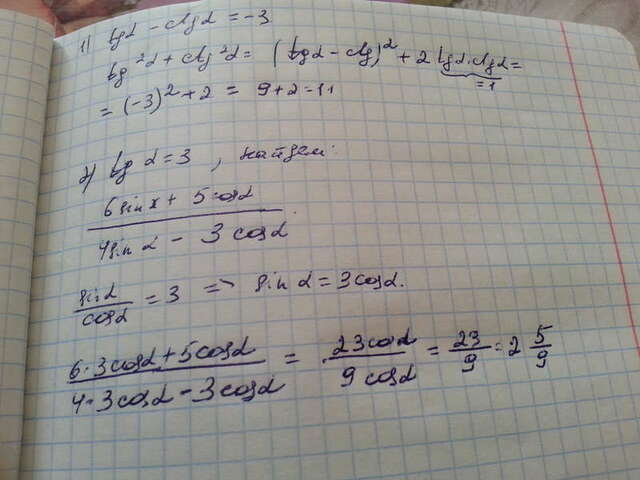 1) tgα − ctgα = −3
tg²α + ctg²α = (tgα − ctg)² + 2 tgα·ctgα =
=1
= (−3)² + 2 = 9 + 2 = 11
2) tg α = 3 , найдем:
6 sin x + 5 cosα
4sin α − 3 cosα
sinα / cosα = 3 => sin α = 3cosα.
6·3cosα + 5cosα / 4·3cosα − 3cosα = 23cosα / 9 cosα = 23/9 = 2 5/9